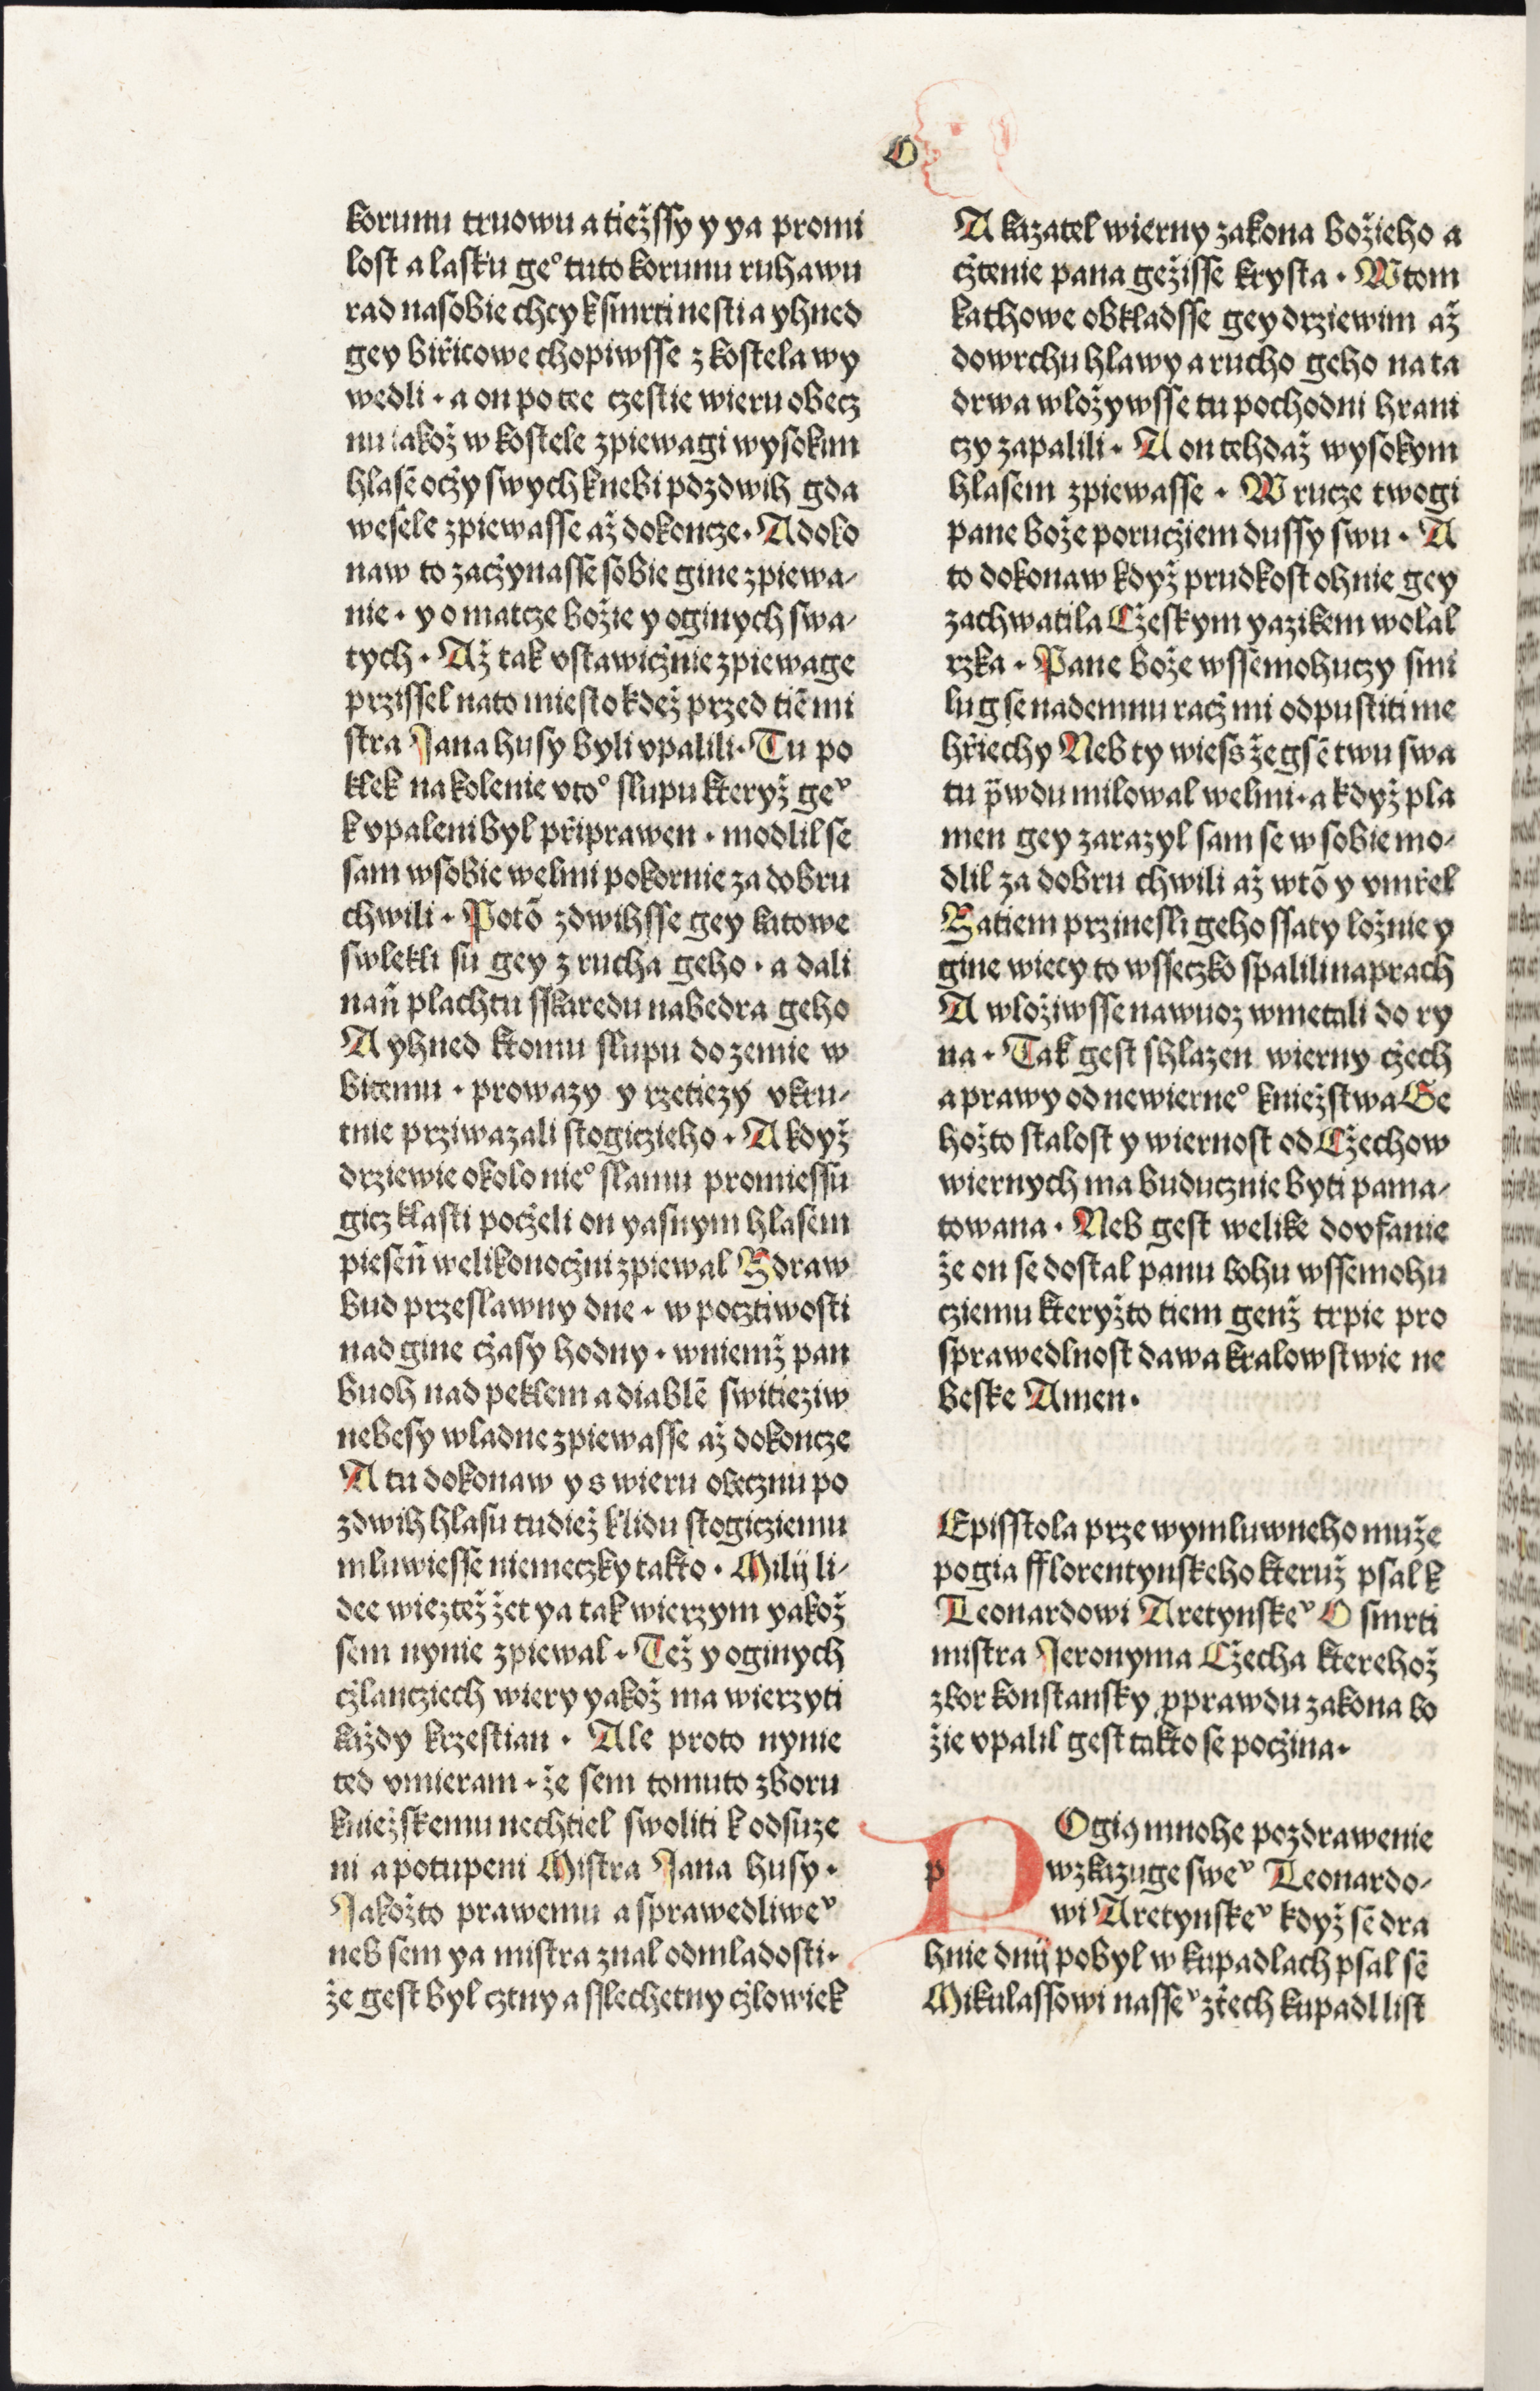 O
korunu trnowu a tiežſſy y ya promi
loſt a laſku ge° tuto korunu ruhawu
rad naſobie chcy kſmrti neſti a yhned
gey biřicowe chopiwſſe z koſtela wy
wedli · a on po tee czeſtie wieru obecz
nu iakož w koſtele zpiewagi wyſokim
hlaſē očzy ſwych knebi pdzdwih gda
weſele zpiewaſſe až dokoncze· A doko
naw to začzynaſſe ſobie gine zpiewa⸗
nie · y o matcze božie y oginych ſwa⸗
tych · Až tak vſtawičznie zpiewage
prziſſel nato mieſto kdež przed tiē mi
ſtra Jana huſy byli vpalili· Tu po
klek na kolenie vto° ſlupu kteryž geͮ
k vpaleni byl připrawen · modlil ſe
ſam wſobie welmi pokornie za dobru
chwili · Potō zdwihſſe gey katowe
ſwlekli ſu gey z rucha geho · a dali
nañ plachtu ſſkaredu nabedra geho
A yhned ktomu ſlupu do zemie w
bitemu · prowazy y rzetiezy vkru⸗
tnie prziwazali ſtogiczieho · A když
drziewie okolo nie° ſlamu promieſſu
gicz klaſti počzeli on yaſnym hlaſem
pieſeñ welikonočzni zpiewal Zdraw
bud przeſlawny dne · w pocztiwoſti
nad gine čzaſy hodny · wniemž pan
buoh nad peklem a diablē ſwitieziw
nebeſy wladne zpiewaſſe až dokoncze
A tu dokonaw y s wieru obecznu po
zdwih hlaſu tudiež klidu ſtogicziemu
mluwieſſe niemeczky takto · Milij li⸗
dee wieztež žet ya tak wierzym yakož
ſem nynie zpiewal · Tež y oginych
čzlancziech wiery yakož ma wierzyti
každy krzeſtian · Ale proto nynie
ted vmieram · že ſem tomuto zboru
kniežſkemu nechtiel ſwoliti k odſuze
ni a potupeni Miſtra Jana huſy ·
Jakožto prawemu a ſprawedliweͮ
neb ſem ya miſtra znal odmladoſti·
že geſt byl cztny a ſſlechetny čzlowiek
A kazatel wierny zakona božieho a
čztenie pana gežiſſe kryſta · W tom
kathowe obkladſſe gey drziewim až
dowrchu hlawy a rucho geho na ta
drwa wložywſſe tu pochodni hrani
czy zapalili · A on tehdaž wyſokym
hlaſem zpiewaſſe · W rucze twogi
pane bože poručziem duſſy ſwu · A
to dokonaw když prudkoſt ohnie gey
zachwatila Čzeſkym yazikem wolal
rzka · Pane bože wſſemohuczy ſmi
lug ſe nademnu račz mi odpuſtiti me
hřiechy Neb ty wieſs že gſē twu ſwa
tu p̄wdu milowal welmi· a když pla
men gey zarazyl ſam ſe w ſobie mo⸗
dlil za dobru chwili až wtō y vmřel
Zatiem przineſli geho ſſaty ložnie y
gine wiecy to wſſeczko ſpalili naprach
A wložiwſſe nawuoz wmetali do ry
na · Tak geſt ſhlazen wierny čzech
a prawy od newierne° kniežſtwa Ge
hožto ſtaloſt y wiernoſt od Čzechow
wiernych ma buducznie byti pama⸗
towana · Neb geſt welike dovfanie
že on ſe doſtal panu bohu wſſemohu
cziemu kteryžto tiem genž trpie pro
ſprawedlnoſt dawa kralowſtwie ne
beſke Amen·
Epiſſtola prze wymluwneho muže
pogia fflorentynſkeho kteruž pſal k
Leonardowi Aretynſkeͮ O ſmrti
miſtra Jeronyma Čzecha kterehož
zbor konſtanſky ꝓprawdu zakona bo
žie vpalil geſt takto ſe počzina·
p
POgiꝯ mnohe pozdrawenie
wzkazuge ſweͮ Leonardo⸗
wi Aretynſkeͮ když ſē dra
hnie dnij pobyl w kupadlach pſal ſē
Mikulaſſowi naſſeͮ ztěch kupadl liſt